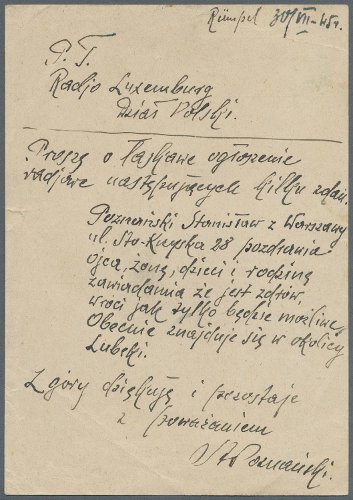 Rümpel 30/VII-45r.
P. T.
Radjo Luxemburg
Dział Polski.
Proszę o łaskawe ogłoszenie
radjowe następujących kilku zdań.
Poznański Stanisław z Warszawy
ul. Sto-Krzyska 28 pozdrawia
ojca, żonę, dzieci i rodzinę
zawiadamia że jest zdrów,
wróci jak tylko będzie możliwe.
Obecnie znajduje się w okolicy
Lubeki.
Z góry dziękuję i pozostaje
z poważaniem
St Poznański.